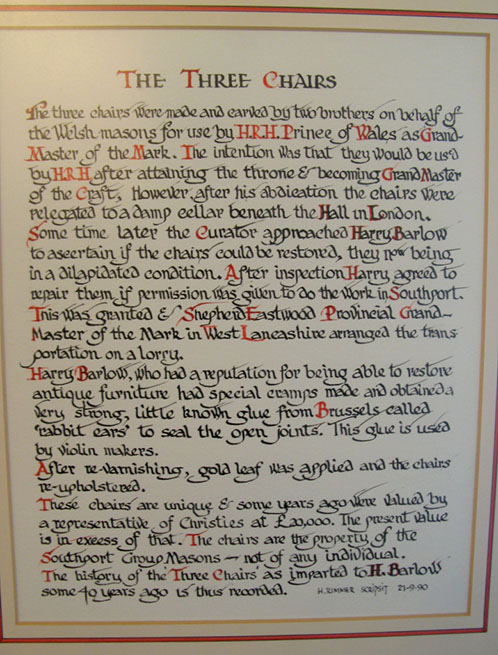 THE THREE CHAIRS
The three chairs were made and carved by two brothers on behalf of
the Welsh masons for use by H.R.H. Prince of Wales as Grand-
Master of the Mark. The intention was that they would be used
by H.R.H after attaining the throne & becoming Grand Master
of the Craft, However, after his abdication the chairs were
relegated to a damp cellar beneath the Hall in London.
Some time later the Curator approached Harry Barlow
to ascertain if the chairs could be restored, they now being
in a dilapidated condition. After inspection Harry agreed to
repair them if permission was given to do the work in Southport.
This was granted & Shepherd Eastwood Provincial Grand-
Master of the Mark in West Lancashire arranged the trans
portation on a lorry.
Harry Barlow, who had a reputation for being able to restore
antique furniture had special cramps made and obtained a
very strong, little known glue from Brussels called
'rabbit ears' to seal the open joints. This glue is used
by violin makers.
After re-varnishing, gold leaf was applied and the chairs
re-upholstered.
These chairs are unique & some years ago were valued by
a representative of Christies at £20,000. The present value
is in excess of that. The chairs are the property of the
Southport Group Masons — not of any individual.
The history of the 'Three Chairs' as imparted to H. Barlow
some 40 years ago is thus recorded. H. RIMMER SCRIPSIT 21-9-90